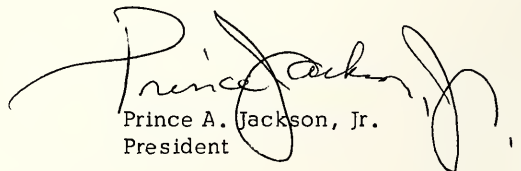 Prince Jackson, Jr.
Prince A. Jackson, Jr.
President